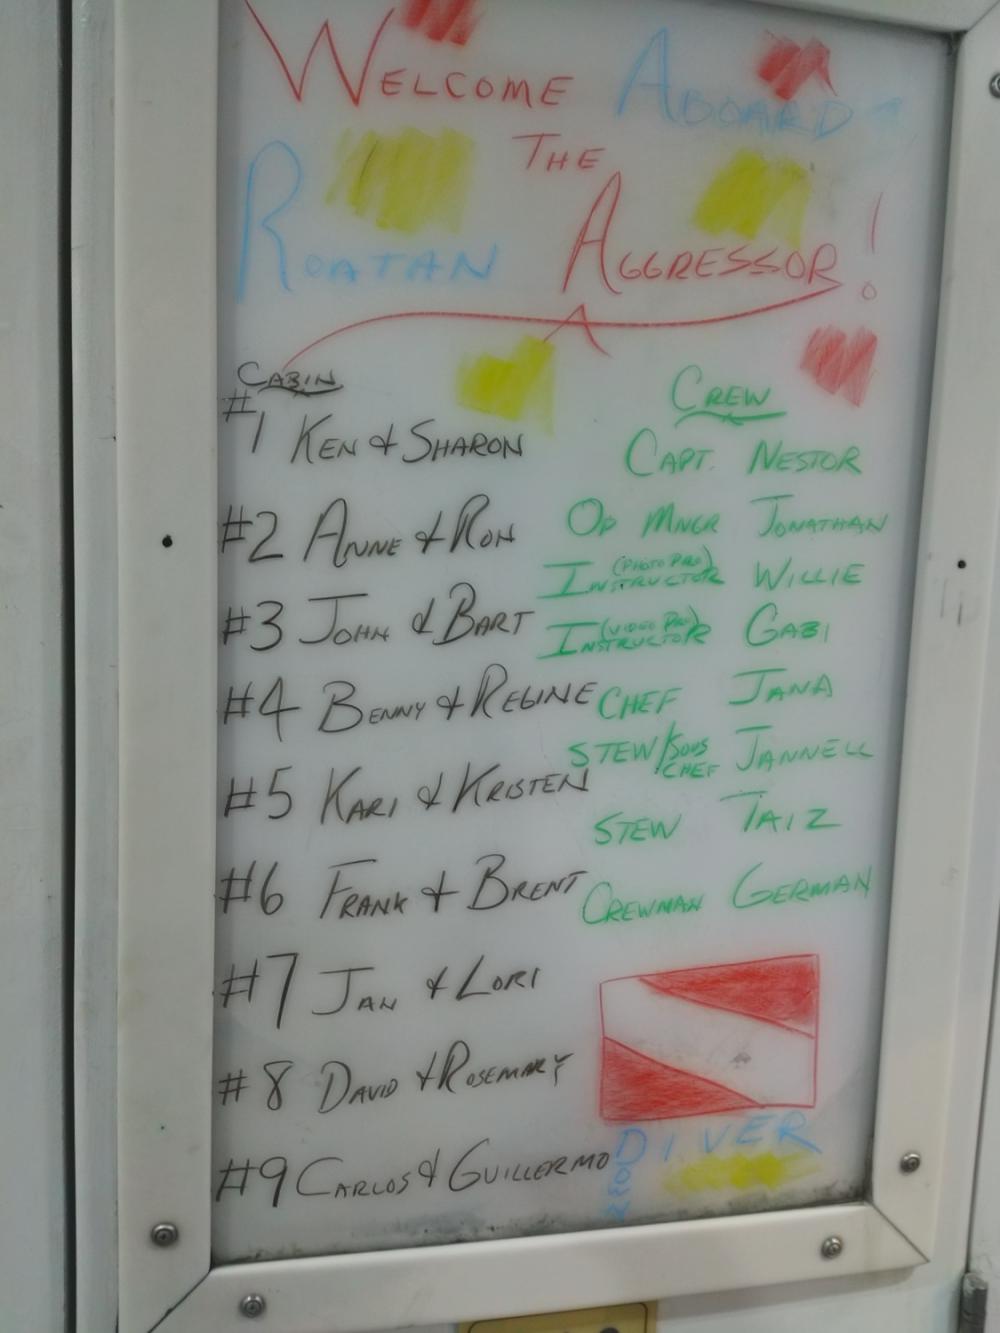 WELCOME ABOARD
THE
ROATAN AGGRESSOR!
CABIN
#1 KEN & SHARON
#2 ANNE & RON
#3 JOHN & BART
#4 BENNY & REGINE
#5 KARI & KRISTEN
#6 FRANK & BRENT
#7 JAN & LORI
#8 DAVID & ROSEMARY
#9 CARLOS & GUILLERMO
CREW
CAPT. NESTOR
OP MNGR JONATHAN
(PHOTO PRO)
INSTRUCTOR WILLIE
(VIDEO PRO)
INSTRUCTOR GABI
CHEF JANA
STEW/SOUS CHEF JANNELL
STEW TAIZ
CREWMAN GERMAN
DIVER